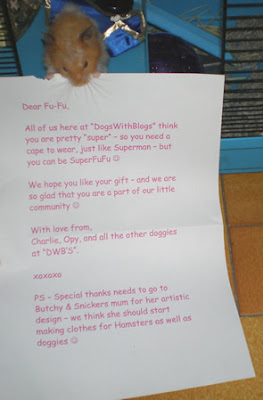 Dear Fu-Fu,
All of us here at "DogsWithBlogs" think
you are pretty "super" – so you need a
cape to wear, just like Superman – but
you can be SuperFuFu ☺
We hope you like your gift – and we are
so glad that you are a part of our little
community ☺
With love from,
Charlie, Opy, and all the other doggies
at "DWB'S".
xoxoxo
PS – Special thanks needs to go to
Butchy & Snickers mum for her artistic
design – we think she should start
making clothes for Hamsters as well as
doggies ☺